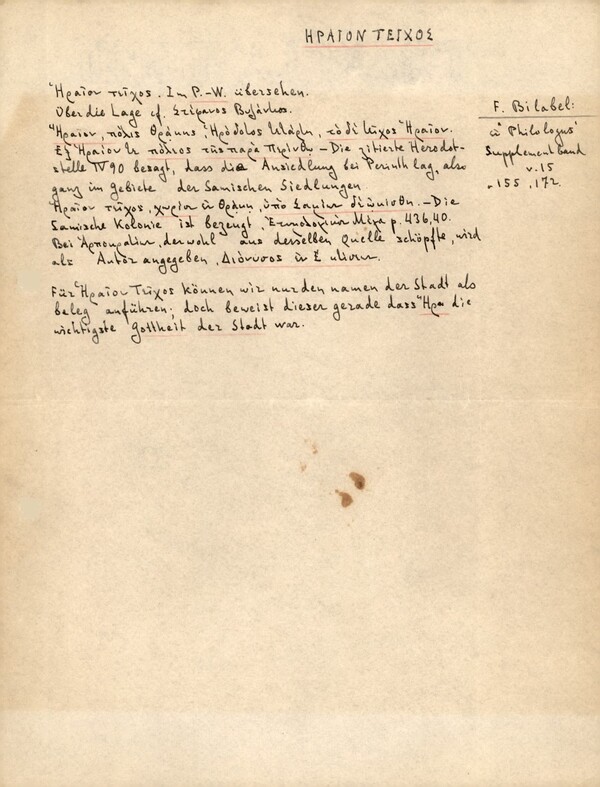 ΗΡΑΙΟΝ ΤΕΙΧΟΣ
Ἡραῖον τεῖχος. Im P.-W. übersehen.
Über die Lage cf. Στέφανος Βυζάντιος.
Ἡραῖον, πόλις Θράκης, Ἡρόδοτος τετάρτῃ, τὸ δὲ τεῖχος Ἡραῖον.
Ἐξ Ἡραίου τε πόλιος τῆς παρὰ Περίνθῳ – Die zitierte Herodot-
stelle IV 90 besagt, dass die Ansiedlung bei Perinth lag, also
ganz im Gebiete der Samischen Siedlungen
Ἡραῖον τεῖχος, χωρίον ἐν Θράκῃ, ὑπὸ Σαμίων – Die
Samische Kolonie ist bezeugt, Ἐτυμολογικὸν Μέγα p. 436,40.
Bei Ἁρποκρατίων, der wohl aus derselben Quelle schöpfte, wird
als Autor angegeben, ἐν
Für Ἡραῖον Τεῖχος können wir nur den namen der Stadt als
beleg anführen; doch beweist dieser gerade dass Ἥρα die
wichtigste Gottheit der Stadt war.
F. Bilabel:
ἐν "Philologus"
Supplementband
v. 15
σ. 155, 172.